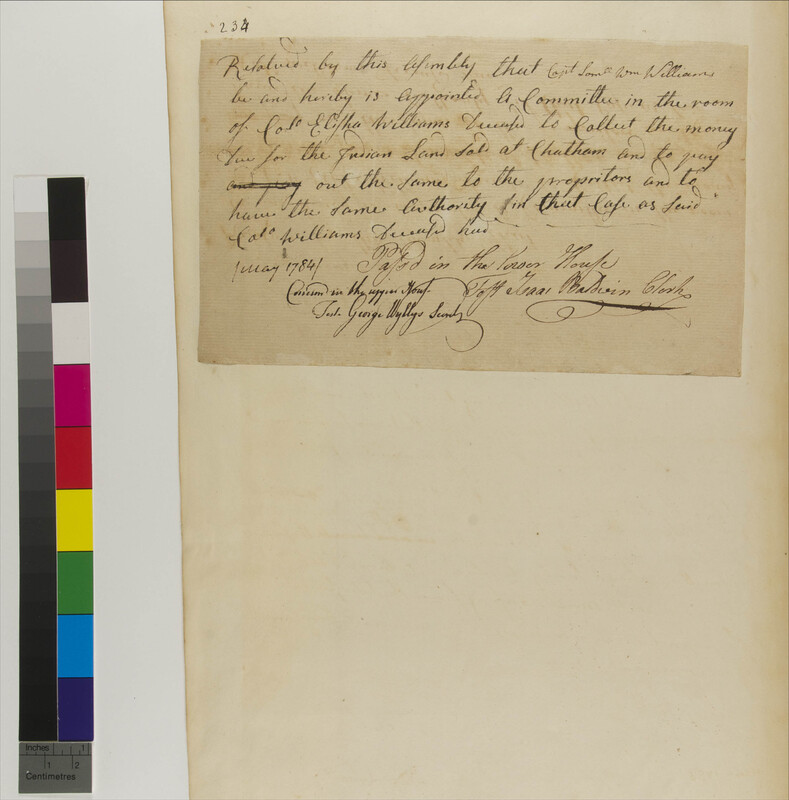 234
Resolved by this Assembly that Capt Saml Wm Williams
be and hereby is Appointed A Committee in the room
of Colo Elisha Williams Deceasd to Collect the money
Due for the Indian Land sold at Chatham and to pay
and pay out the same to the propritors and to
have the same Authority in that Case as said
Colo Williams Deceasd had
[May 1784] Passd in the Lower House
Test Isaac Baldwin Clerk
Concurd in the upper House
Test. George Wyllys Secrety
Inches 1
1 2
Centimetres